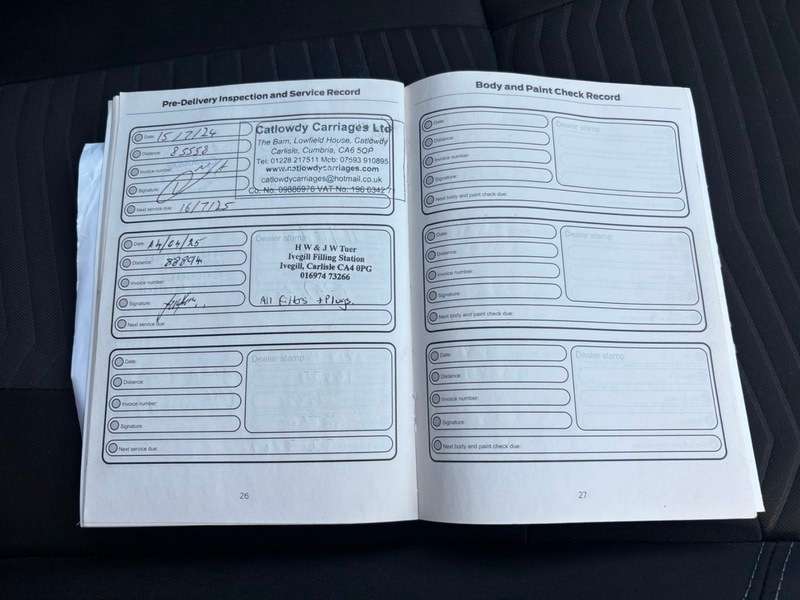 Pre-Delivery Inspection and Service Record
Date: 15/7/24
Distance: 85558
Invoice number:
Signature:
Next service due: 16/7/25
Catlowdy Carriages Ltd
The Barn, Lowfield House, Catlowdy
Carlisle, Cumbria, CA6 5QP
Tel: 01228 217511 Mob: 07593 910895
www.catlowdycarriages.com
catlowdycarriages@hotmail.co.uk
Co. No. 09886976 VAT No: 196 0342 71
Date: 24/04/25
Distance: 88894
Invoice number:
Signature:
Next service due:
Dealer stamp
H W & J W Tuer
Ivegill Filling Station
Ivegill, Carlisle CA4 0PG
016974 73266
All Filters + Plugs.
Date:
Distance:
Invoice number:
Signature:
Next service due:
Dealer stamp
26
Body and Paint Check Record
Date:
Distance:
Invoice number:
Signature:
Next body and paint check due:
Dealer stamp
Date:
Distance:
Invoice number:
Signature:
Next body and paint check due:
Dealer stamp
Date:
Distance:
Invoice number:
Signature:
Next body and paint check due:
Dealer stamp
27